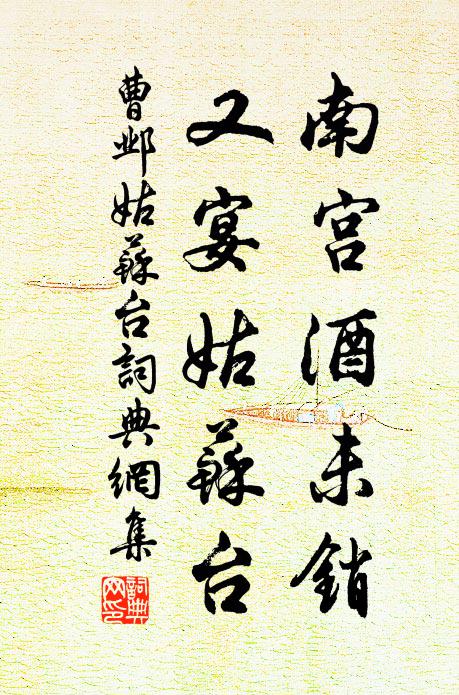 南宫酒未銷
又宴姑蘇台
曹邺姑蘇台詞典網集
詞典網印